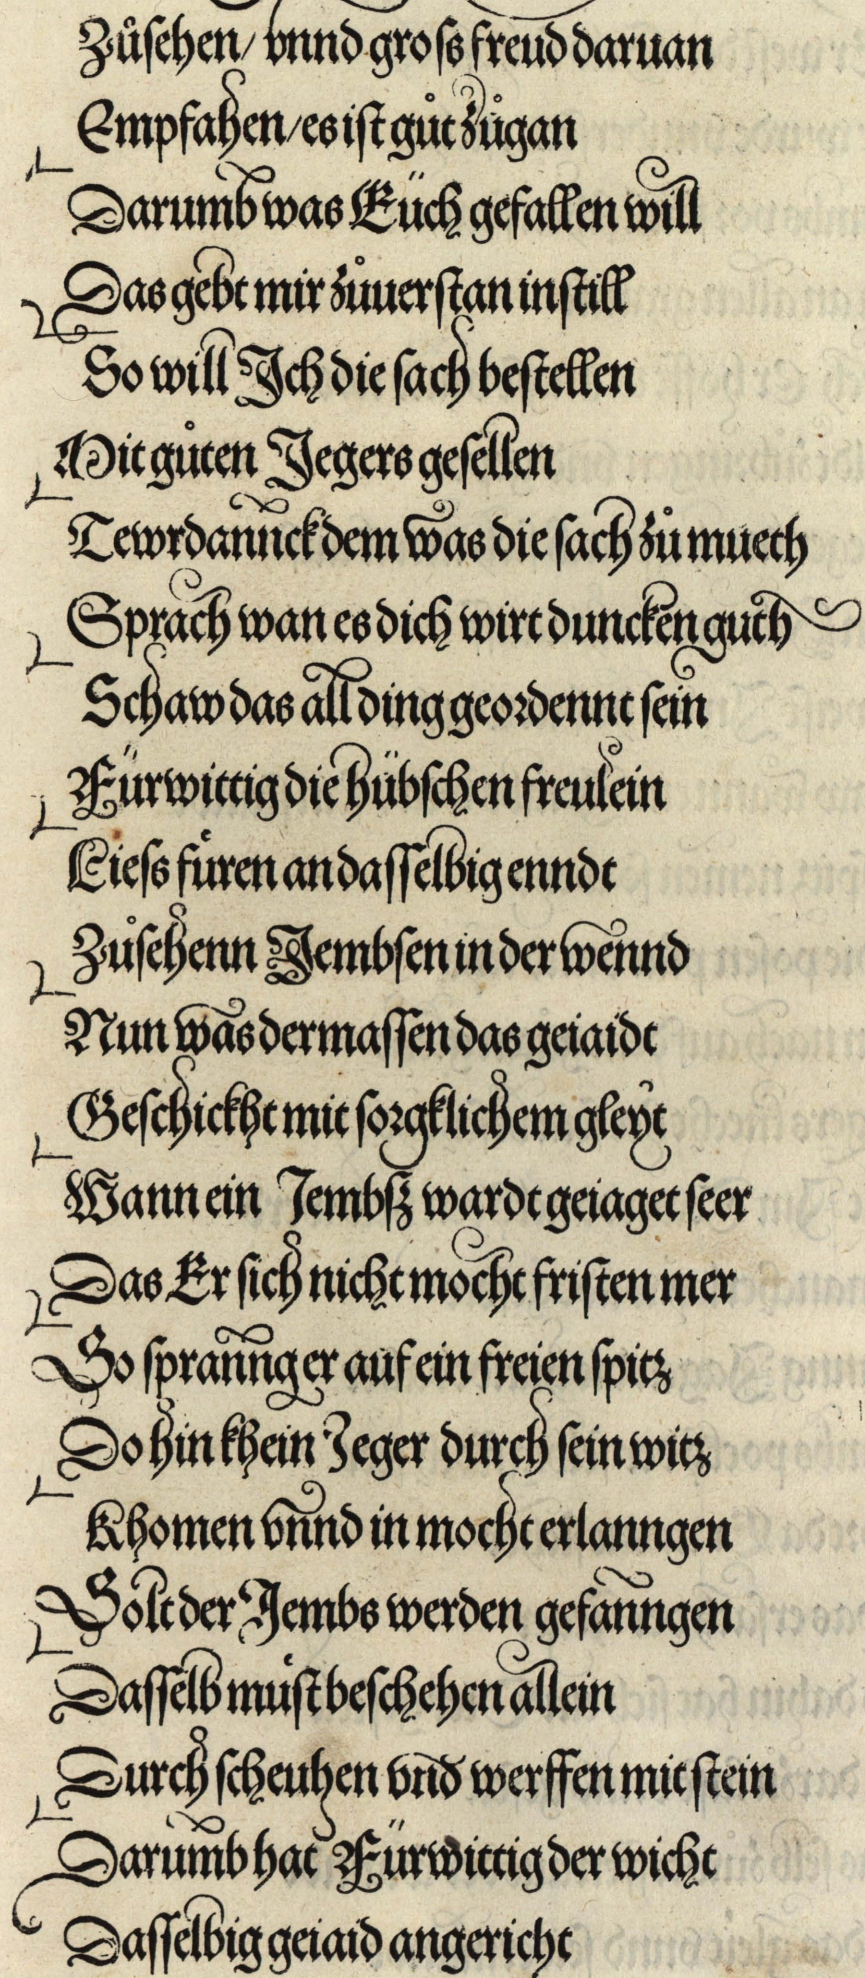 Zůsehen/ vnnd gross freud daruan
Empfahen/es ist gůt zůgan
Darumb was Eüch gefallen will
Das gebt mir zůuerstan in still
So will Ich die sach bestellen
Mit gůten Jegers gesellen
Tewrdannck dem was die sach zů mueth
Sprach wan es dich wirt duncken guth
Schaw das all ding geordennt sein
Fürwittig die hübschen freulein
Liess fůren an dasselbig enndt
Zůsehenn Jembsen in der wennd
Nun was dermassen das geiaidt
Geschickht mit sorgklichem gleyt
Wann ein Jembsz wardt geiaget seer
Das Er sich nicht mocht fristen mer
So sprannng er auf ein freien spitz
Do hin khein Jeger durch sein witz
Khomen vnnd in mocht erlanngen
Solt der Jembs werden gefanngen
Dasselb můst beschehen allein
Durch scheuhen vnd werffen mit stein
Darumb hat Fürwittig der wicht
Dasselbig geiaid angericht